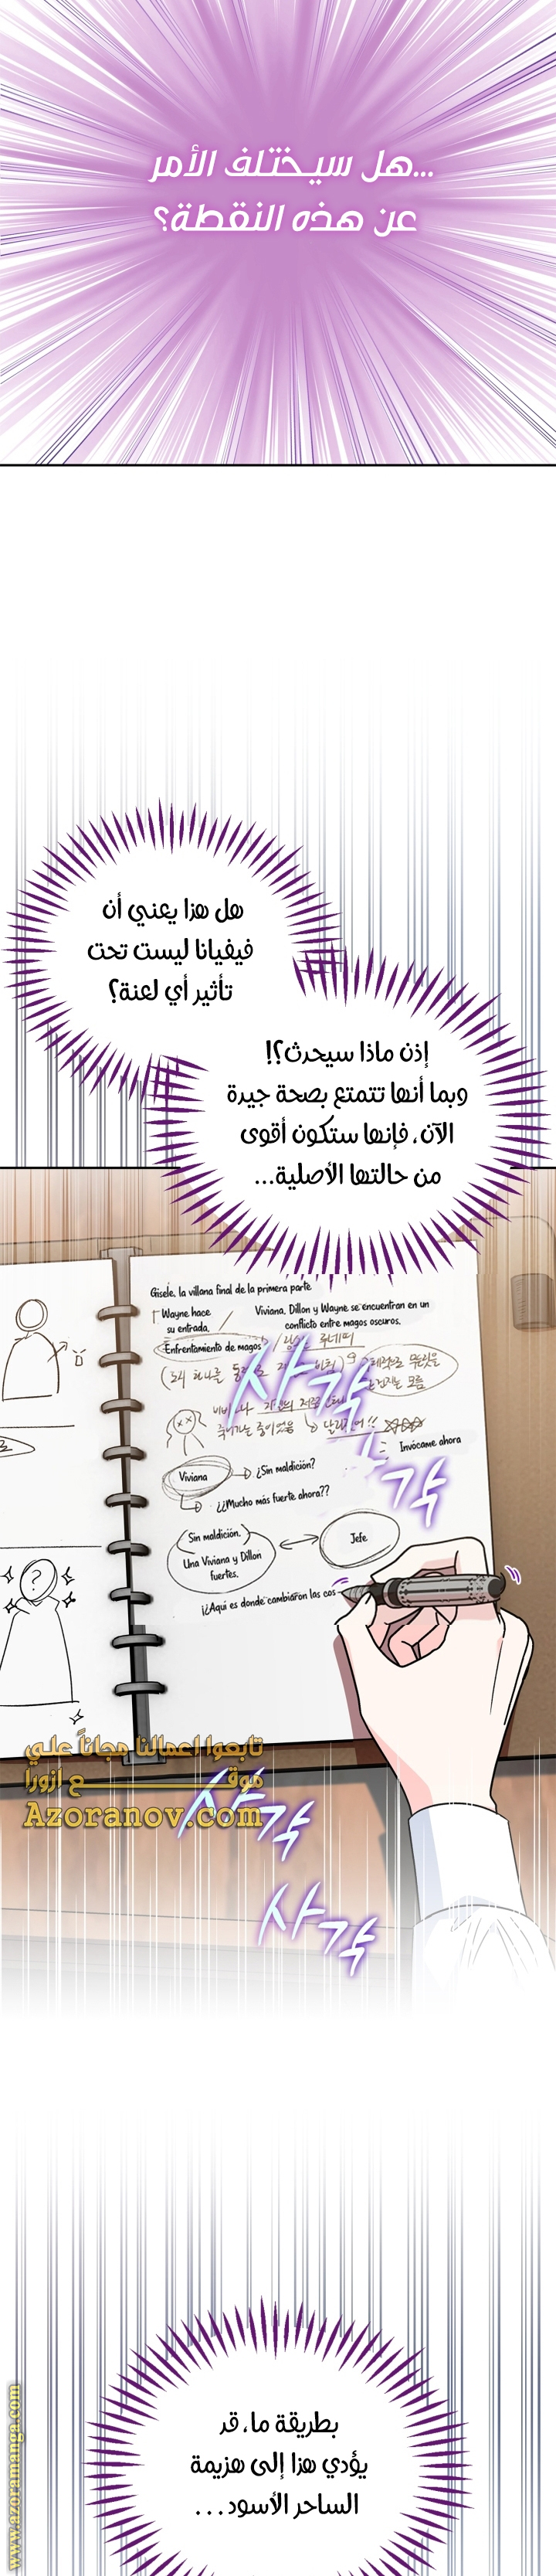 ...هل سيختلف الأمر
عن هذه النقطة؟
هل هذا يعني أن
فيفيانا ليست تحت
تأثير أي لعنة؟
إذن ماذا سيحدث؟!
وبما أنها تتمتع بصحة جيدة
الآن، فإنها ستكون أقوى
من حالتها الأصلية...
Gisele, la villana final de la primera parte
Wayne hace
su entrada.
Viviana, Dillon y Wayne se encuentran en un
conflicto entre magos oscuros.
Enfrentamiento de magos
사각
사각
Invócame ahora
Viviana
¿Sin maldición?
¿¿Mucho más fuerte ahora??
Sin maldición.
Una Viviana y Dillon
fuertes.
Jefe
¡¿Aquí es donde cambiaron las cos
?
تابعوا اعمالنا مجاناً علي
موقع ازورا
Azoranov.com
사각
사각
بطريقة ما، قد
يؤدي هذا إلى هزيمة
الساحر الأسود...
www.azoramanga.com